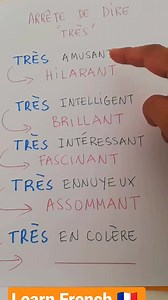 ARRÊTE DE DIRE
"TRÈS"
TRÈS AMUSANT
HILARANT
TRÈS INTELLIGENT
BRILLANT
TRÈS INTÉRESSANT
FASCINANT
TRÈS ENNUYEUX
ASSOMMANT
TRÈS EN COLÈRE
Learn French 🇫🇷